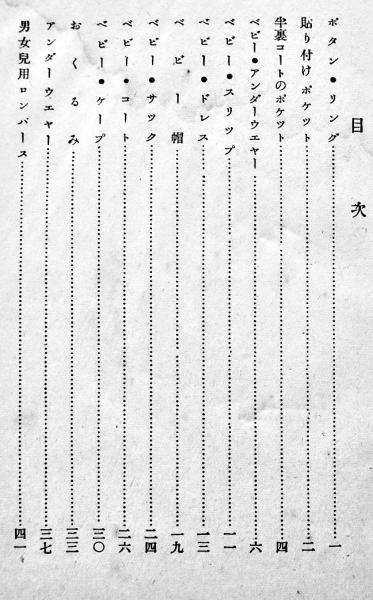 目次
ボタン・リング……一
貼り付けポケツト……二
半裏コートのポケツト……四
ベビー・アンダーウエヤー……六
ベビー・スリツプ……一一
ベビー・ドレス……一三
ベビー帽……一九
ベビー・サツク……二四
ベビー・コート……二六
ベビー・ケープ……三〇
おくるみ……三三
アンダーウエヤー……三七
男女兒用ロンパース……四一